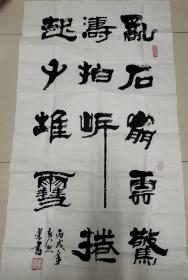 亂石崩雲驚
濤拍岸捲
起千堆雪
丙戌年